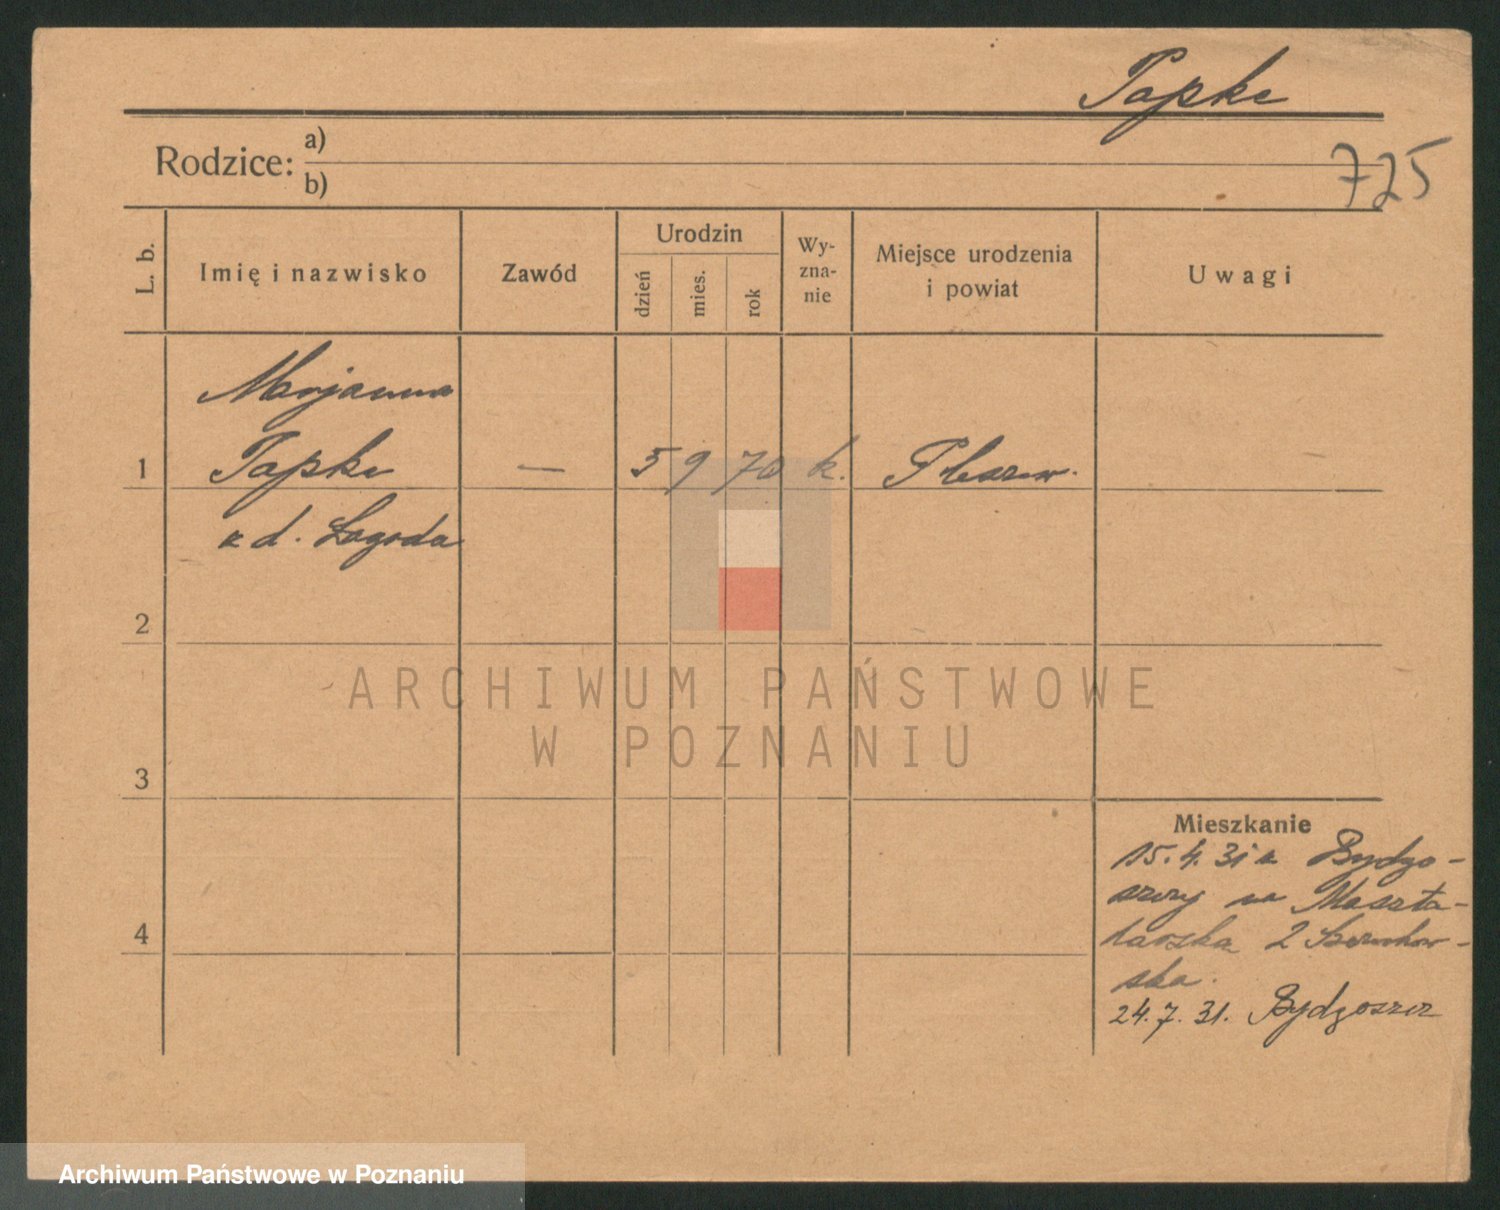 Papke
725
Rodzice: a)
b)
L. b.
Imię i nazwisko
Zawód
Urodzin
dzień
mies.
rok
Wy-
zna-
nie
Miejsce urodzenia
i powiat
Uwagi
Marjanna
1 Papke — 5 9 70 k. Pleszew.
z d. Łagoda
2
3
4
Mieszkanie
15.4.31 z Bydgo-
szczy na Maszta-
larska 2
ska.
24.7.31. Bydgoszcz
ARCHIWUM PAŃSTWOWE
W POZNANIU
Archiwum Państwowe w Poznaniu